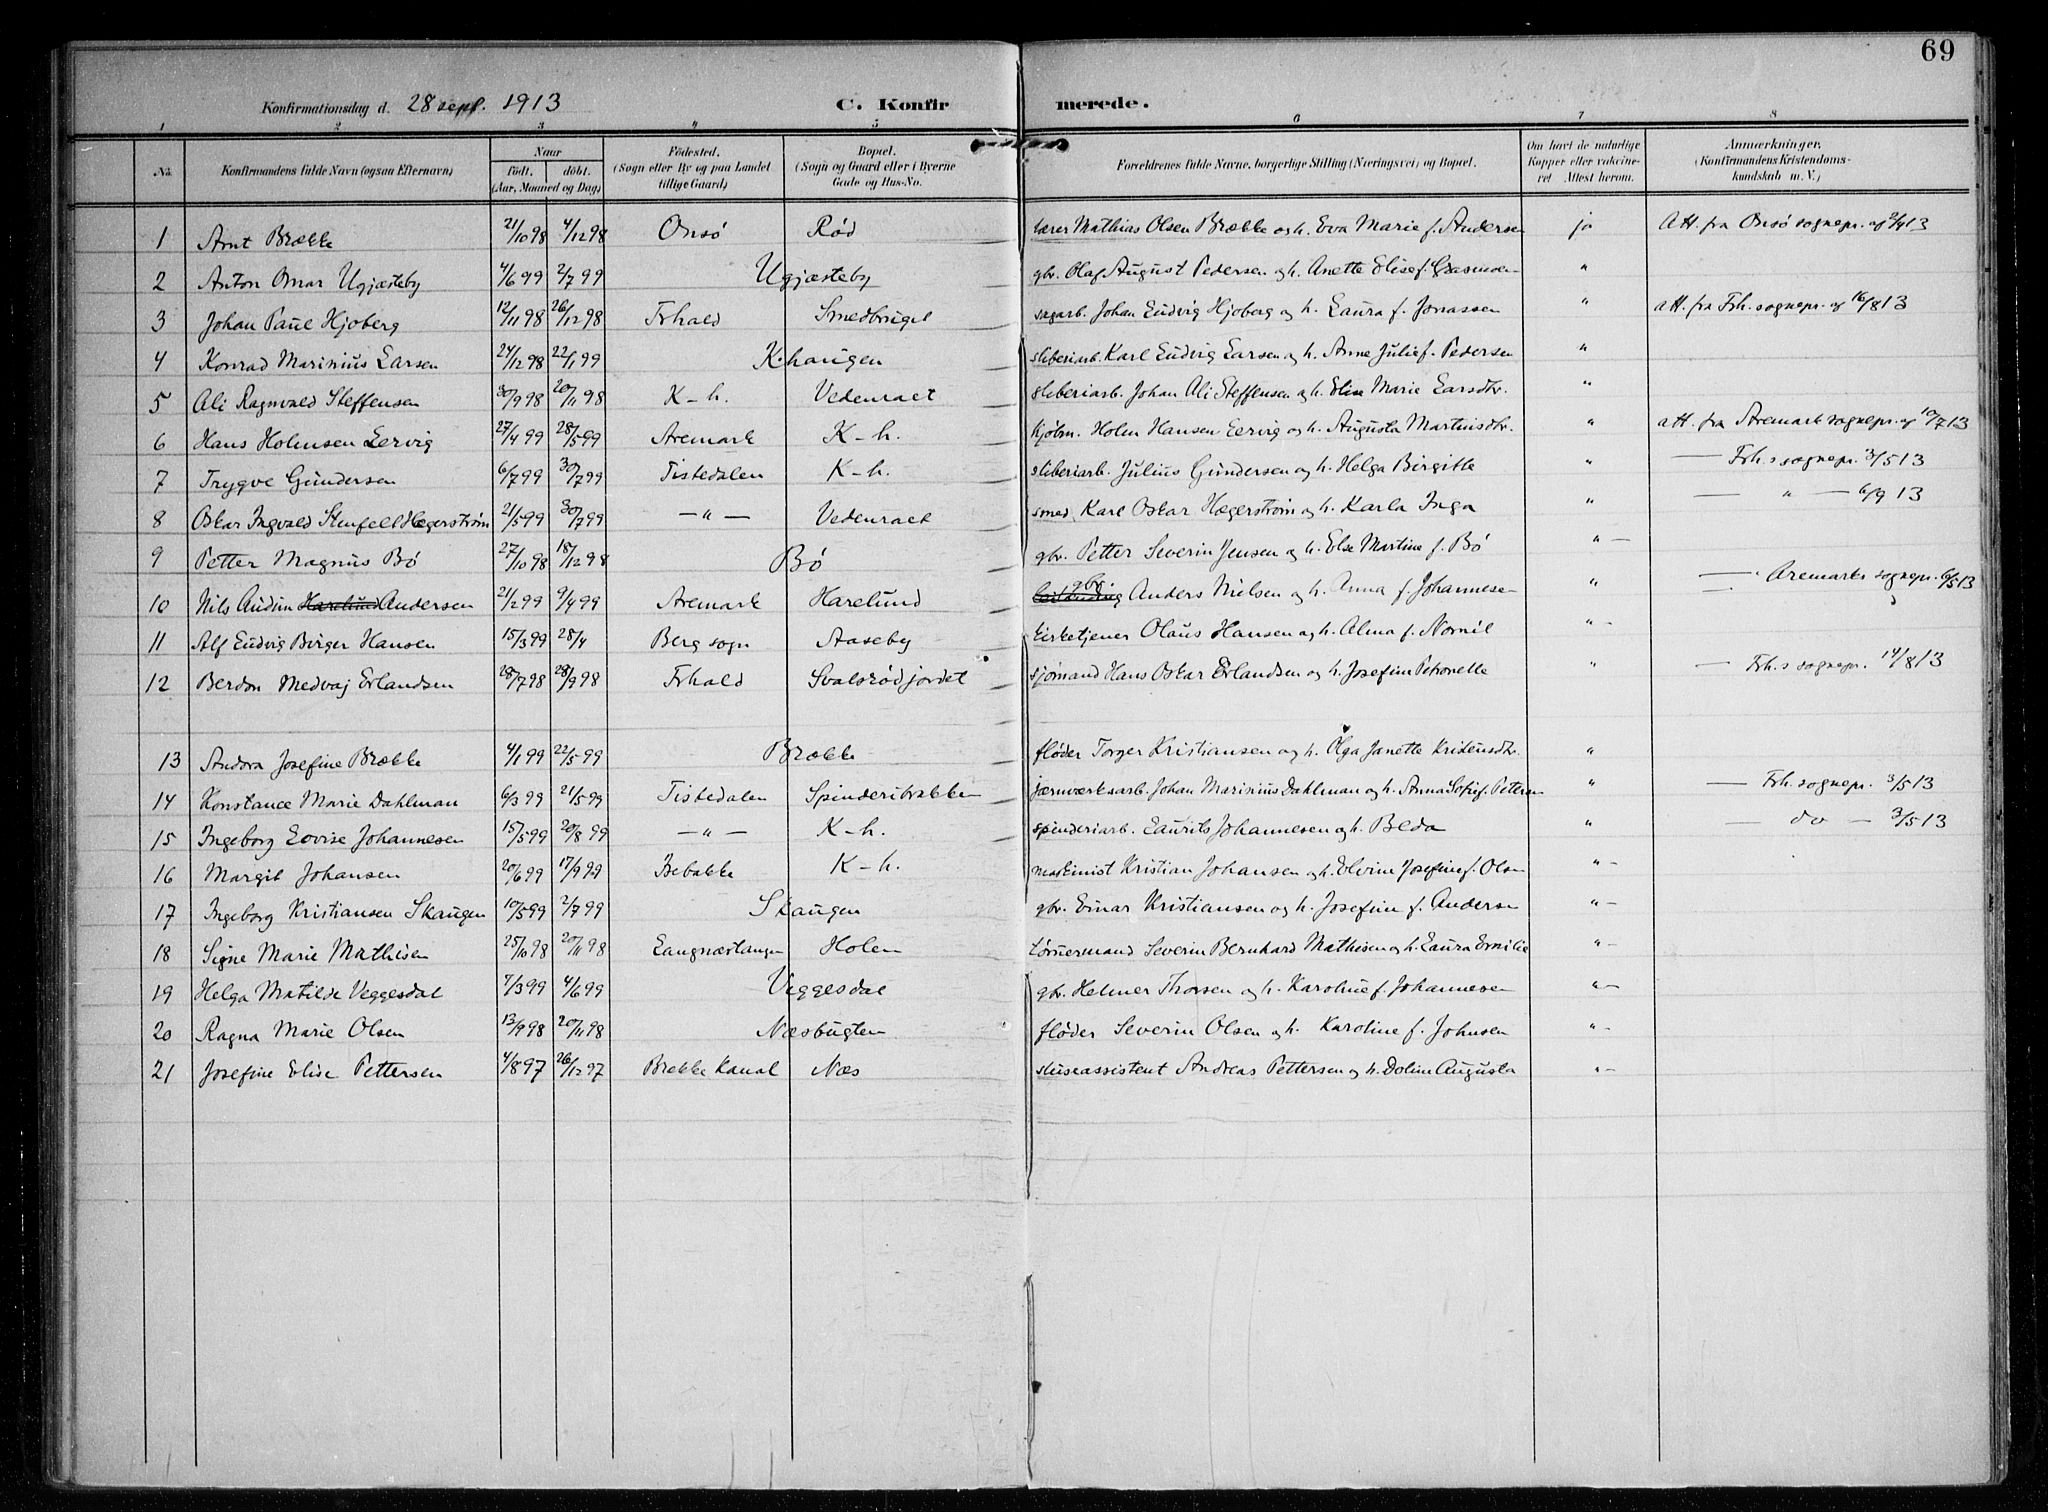 69
Konfirmationsdag d. 28 sept. 1913 C. Konfir merede.
1 2 3 " 5 6 7 8
No. Konfirmandens fulde Navn (ogsaa Efternavn) Naar födt. döbt. (Aar, Maaned og Dag) Födested. (Sogn eller By og paa Landet tillige Gaard) Bopæl. (Sogn og Gaard eller i Byerne Gade og Hus-No. Forældrenes fulde Navne, borgerlige Stilling (Næringsvei) og Bopæl. Om havt de naturlige Kopper eller vaccineret Attest herom. Anmærkninger. (Konfirmandens Kristendomskundskab m. V.)
1 Arnt Brække 21/10 98 4/12 98 Onsö Rød lærer Mathias Olsen Brække og h. Eva Marie f. Andersen ja Att. fra Onsö sognepr. af 2/4 13
2 Anton Omar Ugjæsteby 4/6 99 2/7 99 Ugjæsteby gbr. Olaf August Pedersen og h. Anette Elise f. "
3 Johan Paul Hjoberg 12/11 98 26/12 98 Frhald Smedbruget sagarb. Johan Ludvig Hjoberg og h. Laura f. Jonassen " att. fra Frh. sognepr. af 16/8 13
4 Konrad Marinius Larsen 24/12 98 22/1 99 K-haugen sliberiarb. Karl Ludvig Larsen og h. Anne Julie f. Pedersen "
5 Ali Ragnvald Steffensen 30/9 98 20/11 98 K-h. Vedenraet sliberiarb. Johan Ali Steffensen og h. Elise Marie Larsdtr. "
6 Hans Holmsen Lervig 27/4 99 28/5 99 Aremark K-h. kjøbm. Holm Hansen Lervig og h. Augusta Martinsdtr. " att. fra Aremark sognepr. af 10/7 13
7 Trygve Gundersen 6/7 99 30/7 99 Tistedalen K-h. sliberiarb. Julius Gundersen og h. Helga Birgitte " — Frh.s sognepr. 3/5 13
8 Oskar Ingvald Stenfelt Hægerstrøm 21/5 99 30/7 99 — " — Vedenraet smed, Karl Oskar Hægerstrøm og h. Karla Inga " — " — 6/9 13
9 Petter Magnus Bö 27/10 98 18/12 98 Bö gbr. Petter Severin Jensen og h. Else Martine f. Bö " —
10 Nils Audun Harelund Andersen 21/2 99 9/4 99 Aremark Harelund gbr. Anders Nielsen og h. Anna f. Johannese " — Aremarks sognepr. 6/5 13
11 Alf Ludvig Birger Hansen 15/3 99 28/4 Berg sogn Aaseby kirketjener Olaus Hansen og h. Alma f. " -
12 Berdon Medvaj Erlandsen 28/7 98 28/9 98 Frhald Svalsrødjordet sjømand Hans Oskar Erlandsen og h. Josefine Petronelle " — Frh.s sognepr. 14/8 13
13 Andora Josefine Brække 4/1 99 22/5 99 Brække fløder Torger Kristiansen og h. Olga Janette Kristensdtr. "
14 Konstance Marie Dahlman 6/3 99 21/5 99 Tistedalen Spinderibakken jærnværksarb. Johan Marinius Dahlman og h. Anna Sofie f. Petersen " — Frh. sognepr. 3/5 13
15 Ingeborg Lovise Johannesen 15/5 99 20/8 99 — " — K-h. spinderiarb. Laurits Johannesen og h. Beda " — do — 3/5 13
16 Margit Johansen 20/6 99 17/9 99 K-h. maskinist Kristian Johansen og h. Elvine Josefine f. Olsen " -
17 Ingeborg Kristiansen Skaugen 10/5 99 2/7 99 Skaugen gbr. Einar Kristiansen og h. Josefine f. Anderse " -
18 Signe Marie Mathisen 25/10 98 20/11 98 Langnæstangen Holen tømmermand Severin Bernhard Mathisen og h. Laura Emilie " -
19 Helga Matilde Veggesdal 7/3 99 4/6 99 Veggesdal gbr. Helmer Thorsen og h. Karoline f. Johannesen " -
20 Ragna Marie Olsen 13/9 98 20/11 98 Næsbugten fløder Severin Olsen og h. Karoline f. Johnsen " -
21 Josefine Elise Pettersen 4/8 97 26/12 97 Brække Kanal Næs sluseassistent Andreas Pettersen og h. Doline Augusta " -